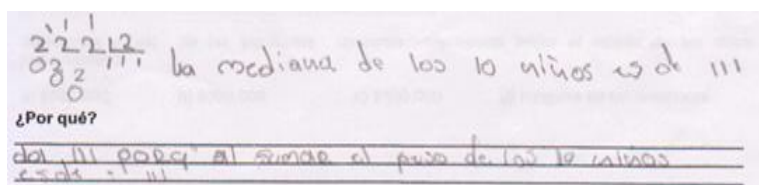 222 2
02 111 La mediana de los 10 niños es de 111
02
0
¿Por qué?
111 porq' al sumar el peso de los 10 niños
es de : 111